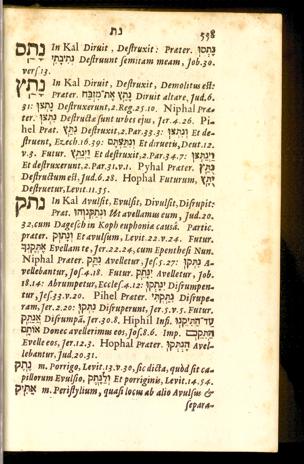 נת 598
נָתַס In Kal Diruit, Destruxit: Præter. נָתְסוּ
נְתִיבָתִי Destruunt semitam meam, Job.30.
vers.13.
נָתַץ In Kal Diruit, Destruxit, Demolitus est:
Præter. נָתַץ אֶת־מִזְבַּח Diruit altare, Jud.6.
31: נָתְצוּ Destruxerunt, 2.Reg.25.10. Niphal Præ-
ter. נִתְּצוּ Destructæ sunt urbes ejus, Jer.4.26. Pi-
hel Præt. נִתַּץ Destruxit, 2.Par.33.3: וְנִתְּצוּ Et de-
struent, Ezech.16.39: וּנְתַצְתֶּם Et druetis, Deut.12.
v.3. Futur. וַיְנַתֵּץ Et destruxit, 2.Par.34.7: וַיְנַתְּצוּ
Et destruxerunt, 2.Par.31.v.1. Pyhal Præter. נֻתַּץ
Destructum est, Jud.6.28. Hophal Futurum, יֻתָּץ
Destruetur, Levit.11.35.
נָתַק In Kal Avulsit, Evulsit, Divulsit, Disrupit:
Præt. וּנְתַקְּנוּהוּ Ubi avellamus eum, Jud.20.
32, cum Dagesch in Koph euphoniæ causâ. Partic.
præter. וְנָתוּק Et avulsum, Levit.22.v.24. Futur.
אֶתְּקֶנְךָּ Evellam te, Jer.22.24, cum Epenthesi Nun.
Niphal Præter. נִתַּק Avelletur, Jes.5.27: נִתְּקוּ A-
vellebantur, Jos.4.18. Futur. יִנָּתֵק Avelletur, Job.
18.14: Abrumpetur, Eccles.4.12: יִנָּתְקוּ Disrumpen-
tur, Jes.33.v.20. Pihel Præter. נִתַּקְתִּי Disrupe-
ram, Jer.2.20: נִתְּקוּ Disruperunt, Jer.5.v.5. Futur.
אֲנַתֵּק Disrumpã, Jer.30.8. Hiphil Infi. עַד־הַתִּיקֵנוּ
אוֹתָם Donec avellerimus eos, Jos.8.6. Imp. הַתִּקֵם
Evelle eos, Jer.12.3. Hophal Præter. הָנְתְּקוּ Avel-
lebantur, Jud.20.31.
נֶתֶק m. Porrigo, Levit.13.v.30, sic dicta, quòd sit ca-
pillorum Evulsio, וְלַנָּתֶק Et porriginis, Levit.14.54.
אַתִּיק m. Peristylium, quasi locus ab alio Avulsus &
separa-